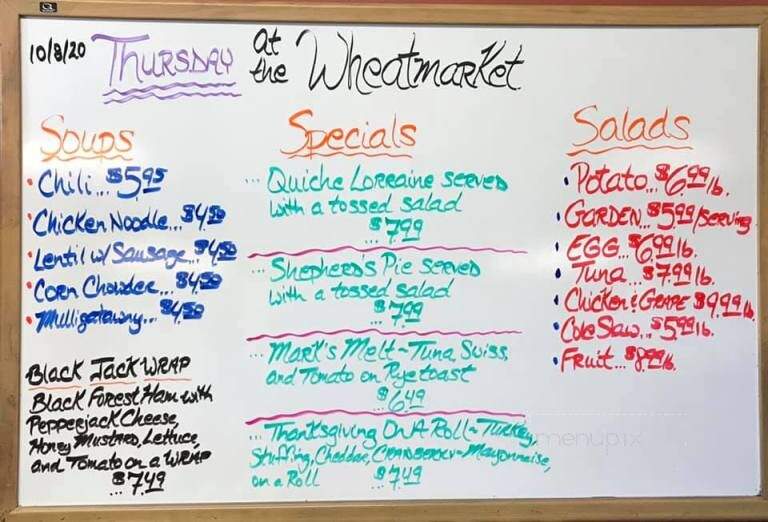 10/8/20 THURSDAY at the Wheatmarket
Soups
Chili... $5.95
Chicken Noodle... $4.50
Lentil w/ Sausage... $4.50
Corn Chowder... $4.50
Mulligatawny... $4.50
Black Jack WRAP
Black Forest Ham with
Pepperjack Cheese,
Honey Mustard, Lettuce,
and Tomato on a WRAP
... $7.49
Specials
... Quiche Lorraine served
with a tossed salad
... $7.99
... Shepherd's Pie served
with a tossed salad
... $7.99
... Mark's Melt ~ Tuna, Swiss,
and Tomato on Rye toast
... $6.49
... Thanksgiving On A Roll ~ Turkey,
Stuffing, Cheddar, Cranberry-Mayonnaise,
on a Roll ... $7.49
Salads
Potato... $6.99 lb.
GARDEN... $5.99/serving
EGG... $6.99 lb.
Tuna... $7.99 lb.
Chicken & Grape $9.99 lb.
Cole Saw... $5.99 lb.
Fruit... $8.99 lb.
menupix